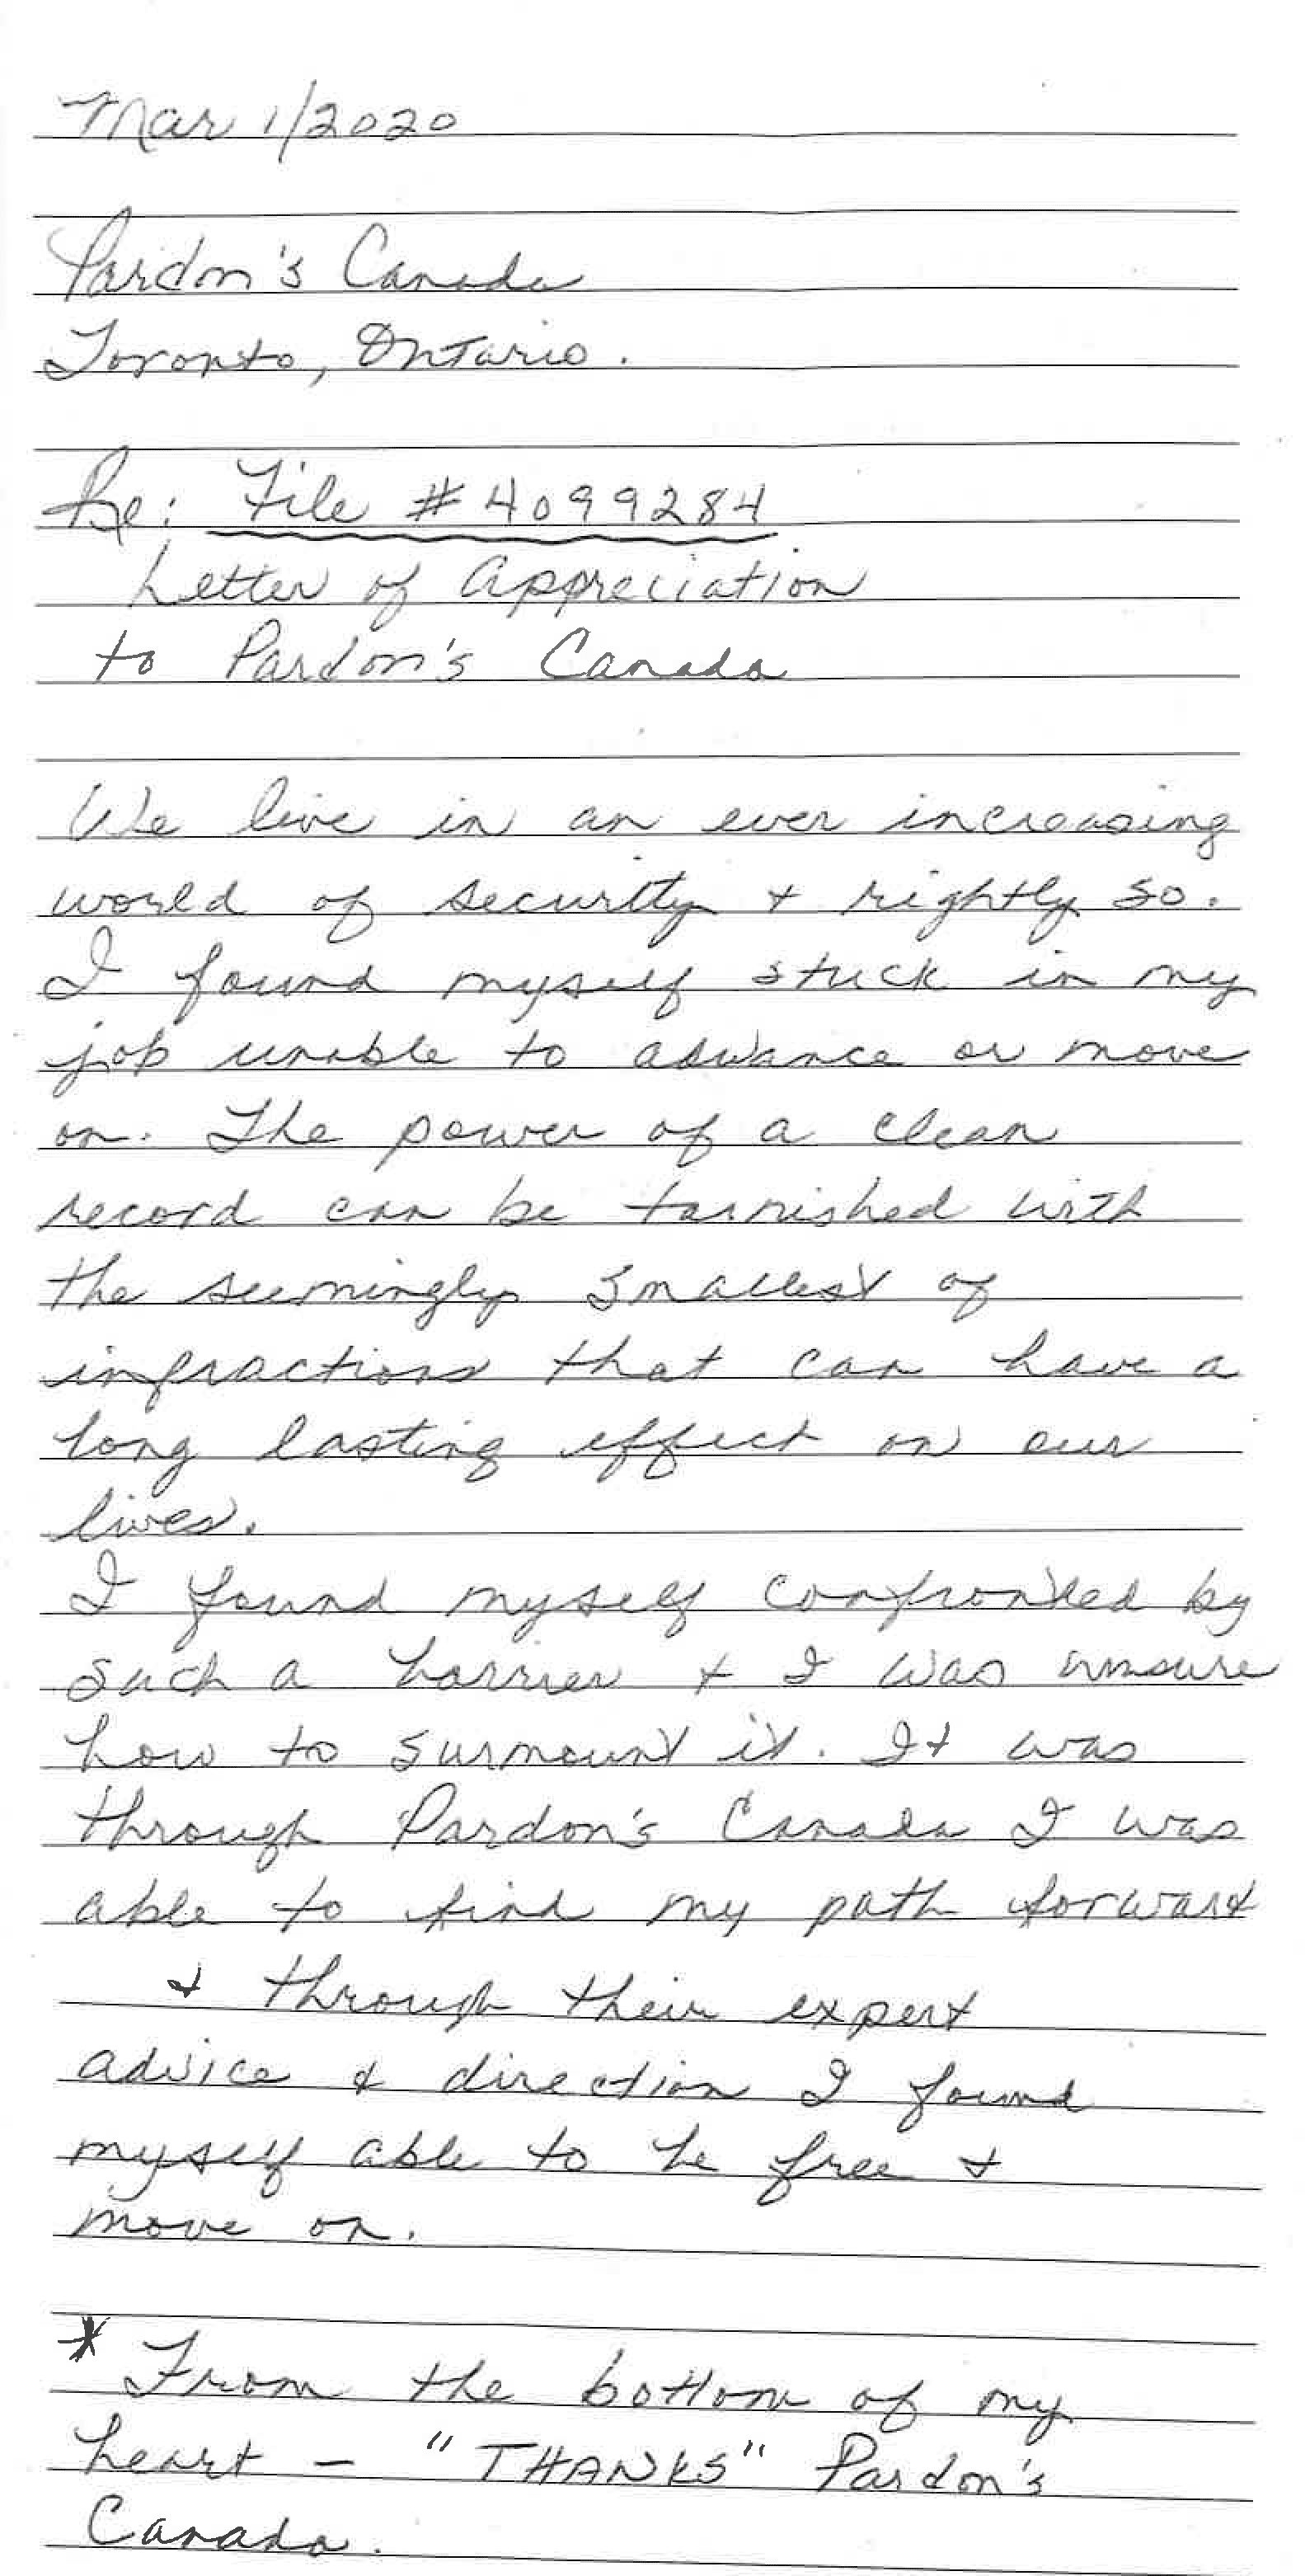 Mar 1/2020
Pardon's Canada
Toronto, Ontario.
Re: File #4099284
Letter of Appreciation
to Pardon's Canada
We live in an ever increasing
world of security + rightly so.
I found myself stuck in my
job unable to advance or move
on. The power of a clean
record can be tarnished with
the seemingly smallest of
infractions that can have a
long lasting effect on our
lives.
I found myself confronted by
such a barrier + I was unsure
how to surmount it. It was
through Pardon's Canada I was
able to find my path forward
+ through their expert
advice + direction I found
myself able to be free +
move on.
* From the bottom of my
heart - "THANKS" Pardon's
Canada.